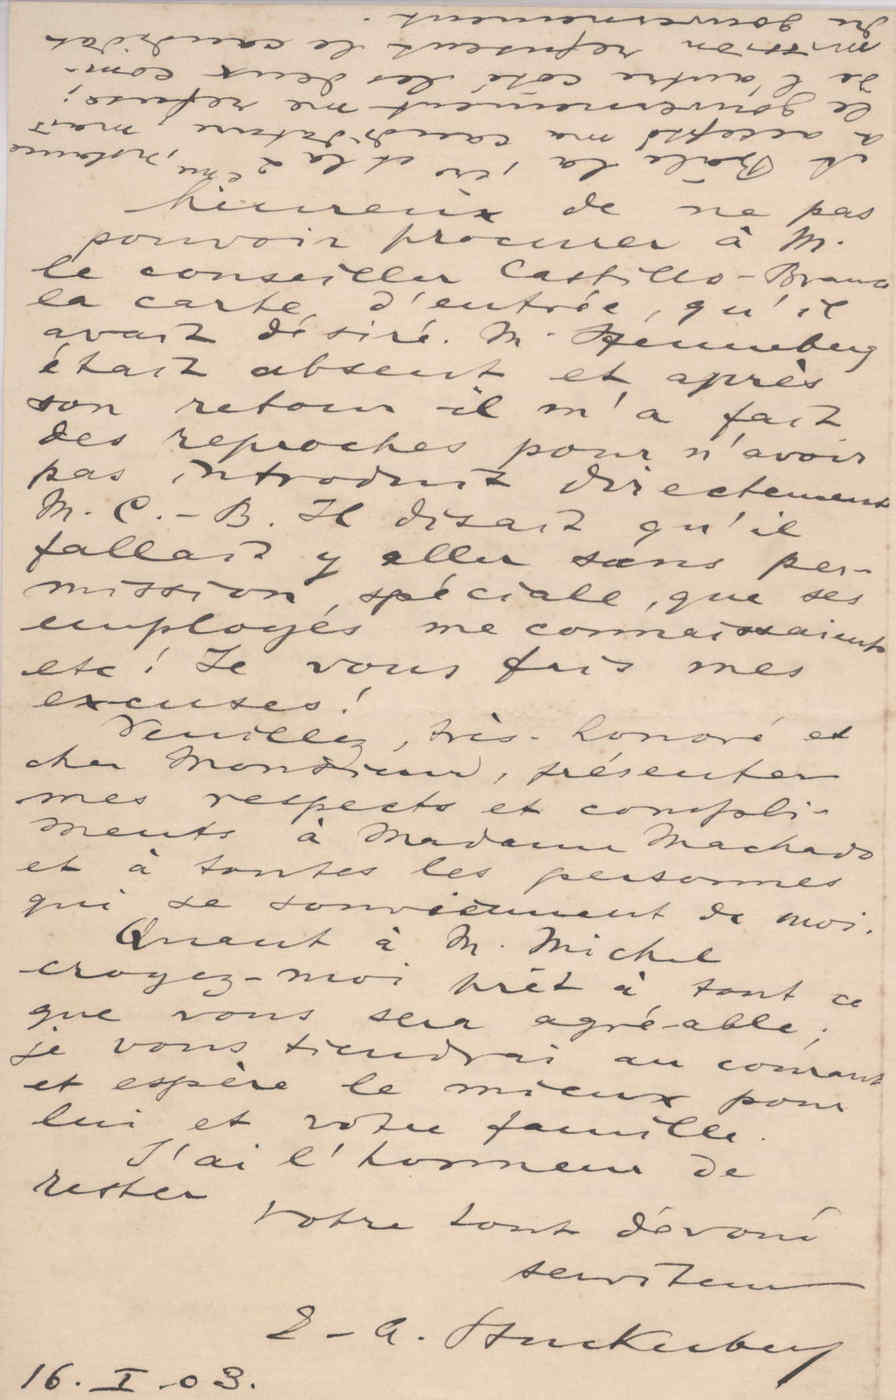 A Bâle la 1ère et la 2ème instance
a accepté ma candidature mais
le gouvernement me refuse;
de l'autre côté les deux com-
mission refusent le candidat
du gouvernement.
heureux de ne pas
pouvoir procurer à M.
le conseiller Castillo-Branco
la carte d'entrée, qu'il
avait désiré. M. Henneberg
était absent et après
son retour il m'a fait
des reproches pour n'avoir
pas introduit directement
M. C.-B. Il disait qu'il
fallait y aller sans per-
mission spéciale, que ses
employés me connaissaient
etc! Je vous fais mes
excuses!
Veuillez, très-honoré et
cher Monsieur, présenter
mes respects et compli-
ments à Madame Machado
et à toutes les personnes
qui se souviennent de moi.
Quant à M. Michel
croyez-moi prêt à tout ce
que vous sera agré-able;
je vous tiendrai au courant
et espère le mieux pour
lui et votre famille.
J'ai l'honneur de
rester
votre tout dévoué
serviteur
E-A. Stuckelberg
16. I. 03.